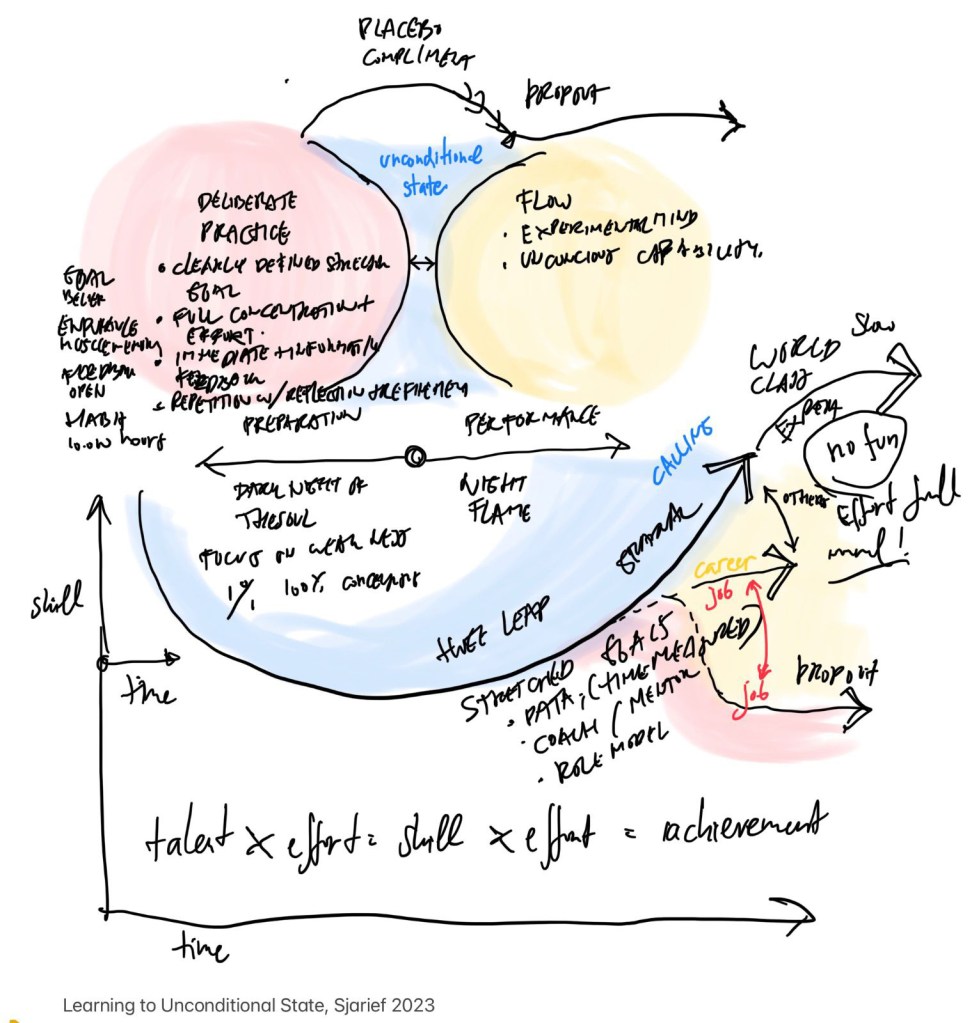 PLACEBO
COMPLIMENT
DROPOUT
unconditional
state
DELIBERATE
PRACTICE
• CLEARLY DEFINED STRETCH
GOAL
• FULL CONCENTRATION +
EFFORT.
• IMMEDIATE + INFORMATIVE
FEEDBACK
• REPETITION W/ REFLECTION + REFINEMENT
GOAL
BELIEF
ENDURANCE
MUSCLE MEMORY
FEEDBACK
OPEN
HABIT
10.000 hours
FLOW
• EXPERIMENTAL MIND
• UNCONCIOUS CAPABILITY.
PREPARATION
PERFORMANCE
DARK NIGHT OF
THE SOUL
FOCUS ON WEAKNESS
1% 100%
NIGHT
FLAME
CALLING
WORLD
CLASS
Slow
EXPERT
no fun
OTHERS
Effort full
career
job
job
DROPOUT
HUGE LEAP
STRETCHED GOALS
• DATA, (TIME MEASURED)
• COACH / MENTOR
• ROLE MODEL
skill
time
talent x effort = skill x effort = achievement
time
Learning to Unconditional State, Sjarief 2023